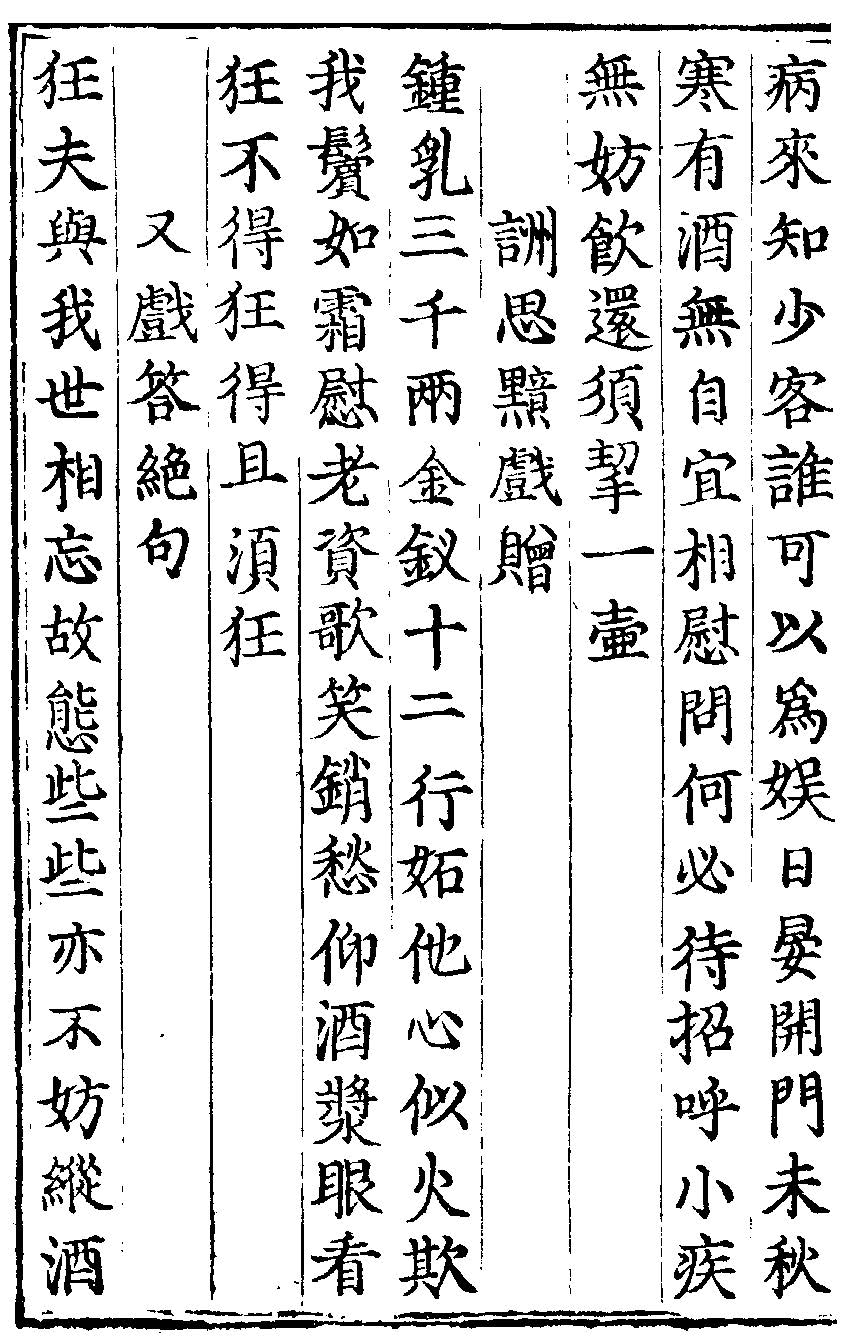 病來知少客誰可以爲娱日晏開門未秋
寒有酒無自宜相慰問何必待招呼小疾
無妨飲還須挈一壷
詶思黯戲贈
鍾乳三千兩金釵十二行妬他心似火欺
我鬢如霜慰老資歌笑銷愁仰酒漿眼看
狂不得狂得且須狂
又戲答絶句
狂夫與我世相忘故態些些亦不妨縱酒